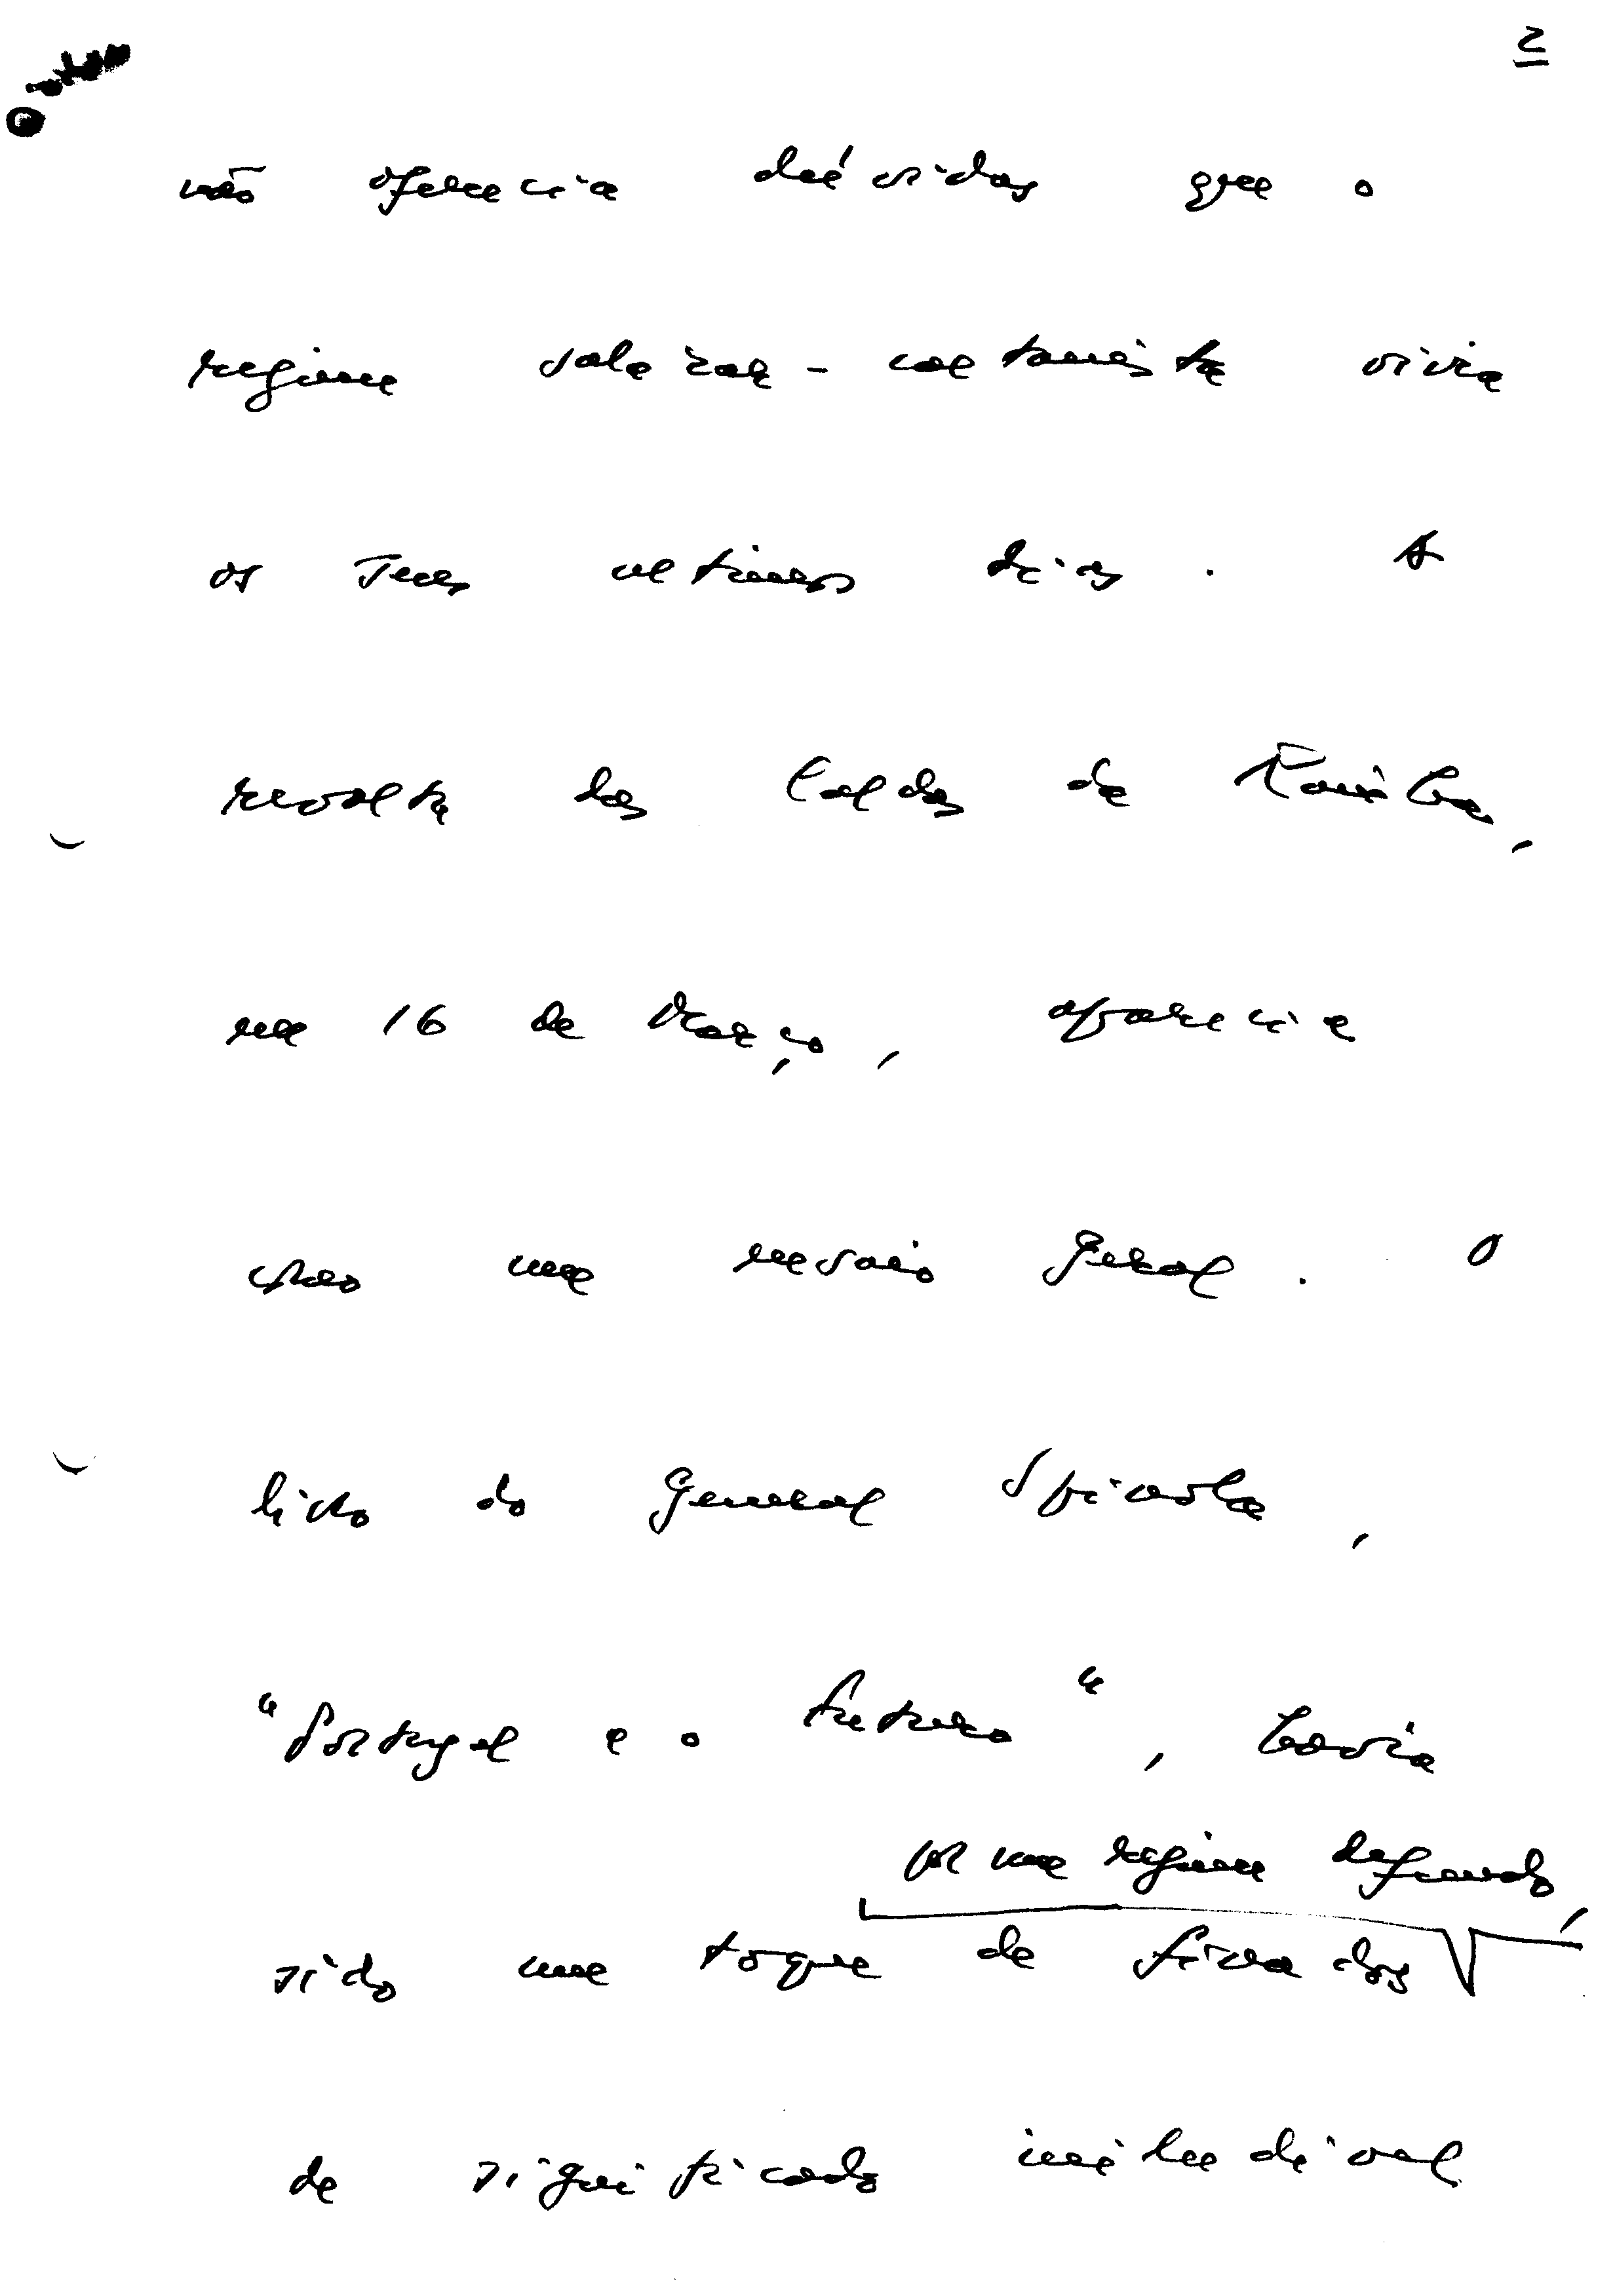 2
não oferecia dúvidas que o
regime salazar-caetanista vivia
os seus ultimos dias. A
revolta das Caldas da Rainha,
em 16 de Março, aparecia
como um ensaio geral. O
livro do General Spínola,
"Portugal e o Futuro", havia
por um regime defunto,
sido um toque de finados
de significado iniludível